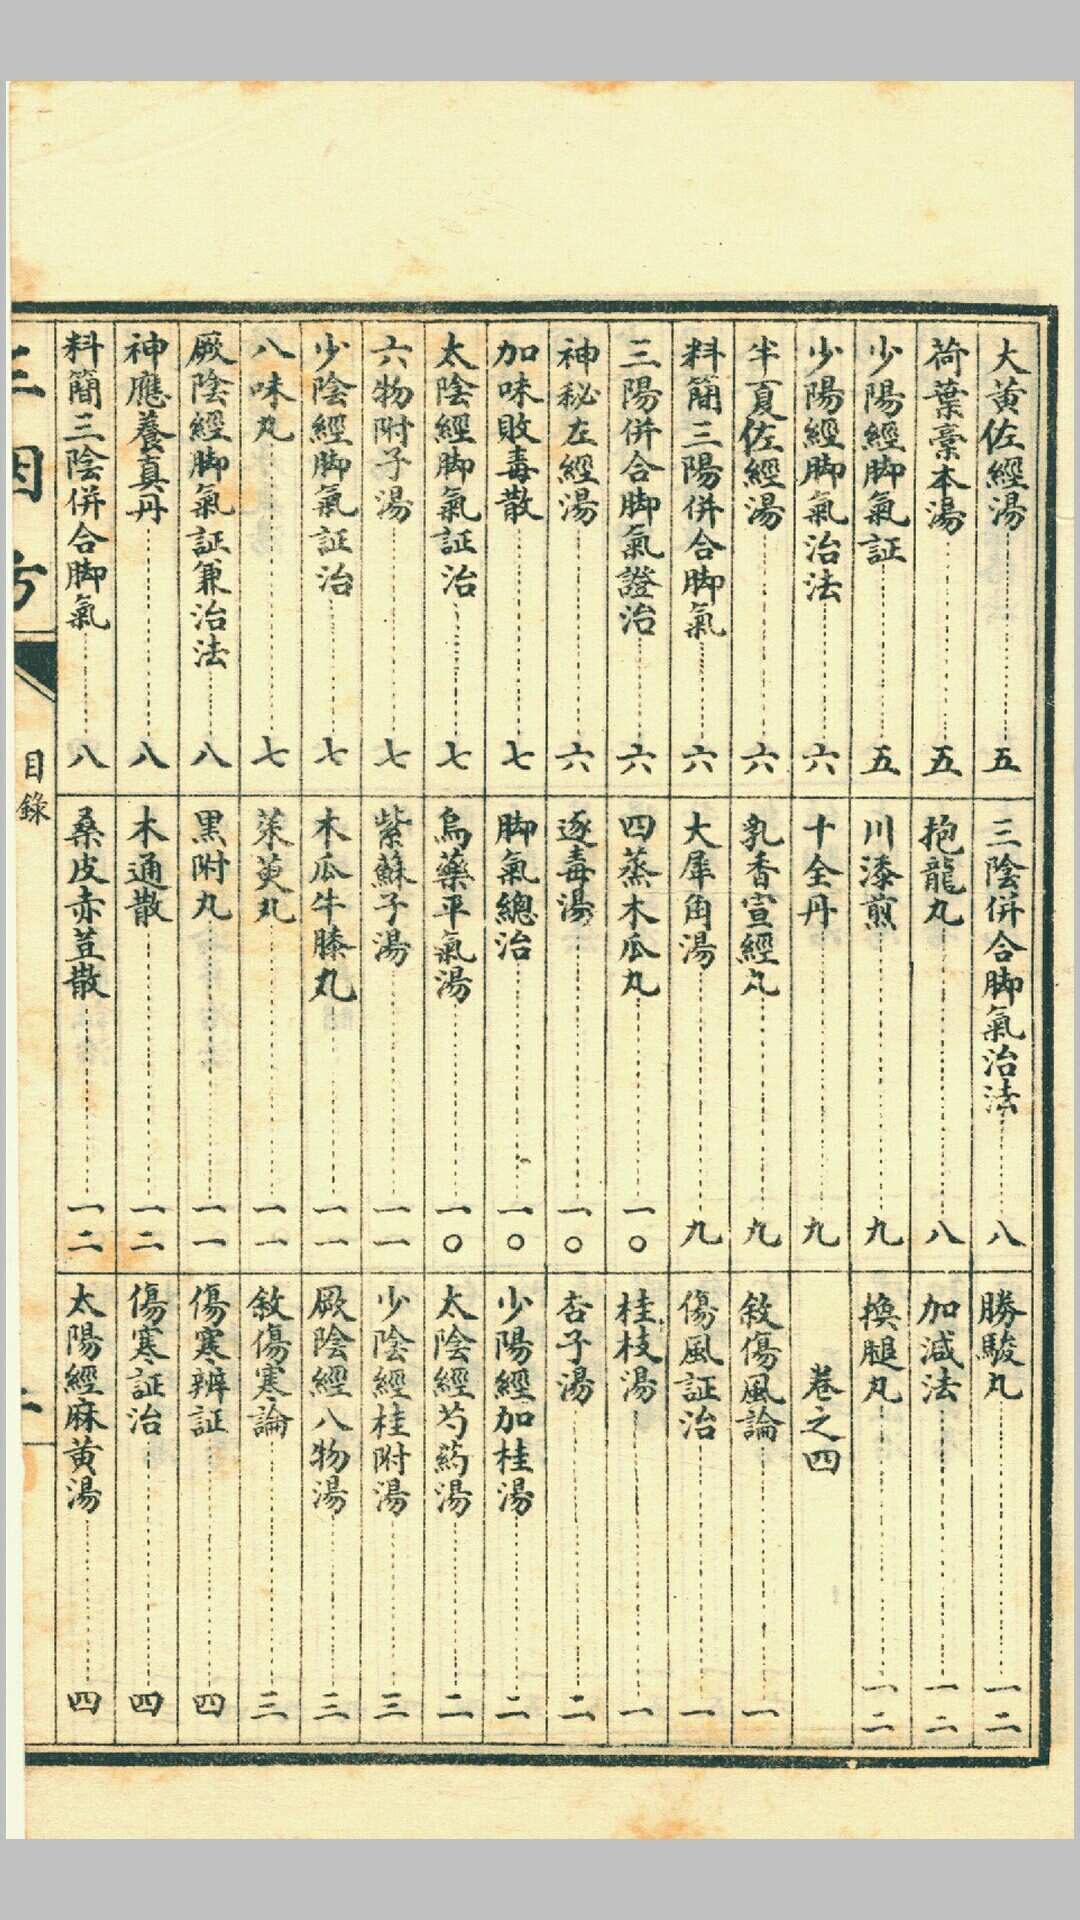 大黃佐經湯……五
荷葉藁本湯……五
少陽經脚氣証……五
少陽經脚氣治法……六
半夏佐經湯……六
料簡三陽併合脚氣……六
三陽併合脚氣證治……六
神秘左經湯……六
加味敗毒散……七
太陰經脚氣証治……七
六物附子湯……七
少陰經脚氣証治……七
八味丸……七
厥陰經脚氣証兼治法……八
神應養真丹……八
料簡三陰併合脚氣……八
三陰併合脚氣治法……八
抱龍丸……八
川漆煎……九
十全丹……九
乳香宣經丸……九
大犀角湯……九
四蒸木瓜丸……一〇
逐毒湯……一〇
脚氣總治……一〇
烏藥平氣湯……一〇
紫蘇子湯……一一
木瓜牛膝丸……一一
茱萸丸……一一
黑附丸……一一
木通散……一二
桑皮赤荳散……一二
勝駿丸……一二
加減法……一二
換腿丸……一二
卷之四
敘傷風論……一
傷風証治……一
桂枝湯……一
杏子湯……二
少陽經加桂湯……二
太陰經芍药湯……二
少陰經桂附湯……三
厥陰經八物湯……三
敘傷寒論……三
傷寒辨証……四
傷寒証治……四
太陽經麻黃湯……四
三因方
目錄